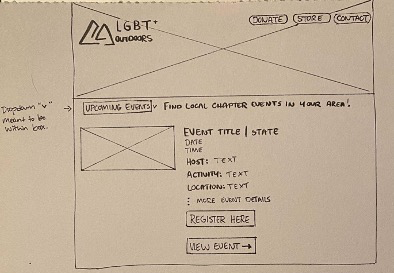 LGBT+
OUTDOORS
DONATE
STORE
CONTACT
Dropdown "v"
meant to be
within box.
UPCOMING EVENTS v
FIND LOCAL CHAPTER EVENTS IN YOUR AREA!
EVENT TITLE | STATE
DATE
TIME
HOST: TEXT
ACTIVITY: TEXT
LOCATION: TEXT
: MORE EVENT DETAILS
REGISTER HERE
VIEW EVENT →